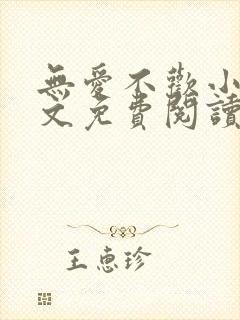 無愛不歡小
文免費閱讀
王惠珍